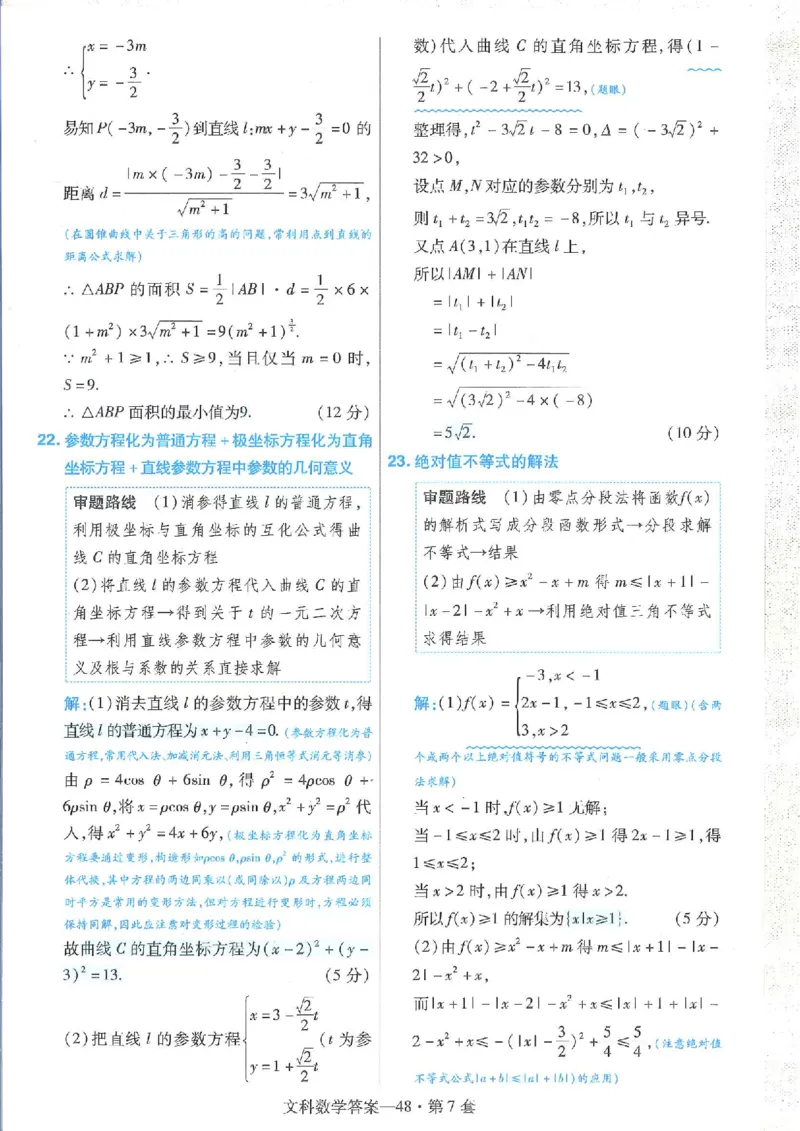 ∴ { x = -3m
y = -3/2 .
易知P(-3m, -3/2)到直线l:mx+y-3/2=0 的
距离 d = |m×(-3m)-3/2-3/2| / √(m²+1) = 3√(m²+1),
(在圆锥曲线中关于三角形的高的问题,常利用点到直线的
距离公式求解)
∴ △ABP 的面积 S = 1/2 |AB| · d = 1/2 ×6×
(1+m²)×3√(m²+1) =9(m²+1)^(3/2).
∵ m²+1≥1,∴ S≥9,当且仅当 m=0 时,
S=9.
∴ △ABP 面积的最小值为9. (12 分)
22. 参数方程化为普通方程+极坐标方程化为直角
坐标方程+直线参数方程中参数的几何意义
审题路线 (1)消参得直线 l 的普通方程,
利用极坐标与直角坐标的互化公式得曲
线 C 的直角坐标方程
(2)将直线 l 的参数方程代入曲线 C 的直
角坐标方程→得到关于 t 的一元二次方
程→利用直线参数方程中参数的几何意
义及根与系数的关系直接求解
解:(1)消去直线 l 的参数方程中的参数 t,得
直线 l 的普通方程为 x+y-4=0. (参数方程化为普
通方程,常用代入法、加减消元法、利用三角恒等式消元等消参)
由 ρ = 4cos θ + 6sin θ,得 ρ² = 4ρcos θ +
6ρsin θ,将 x=ρcos θ,y=ρsin θ,x²+y²=ρ² 代
入,得 x²+y²=4x+6y, (极坐标方程化为直角坐标
方程要通过变形,构造形如ρcos θ,ρsin θ,ρ² 的形式,进行整
体代换,其中方程的两边同乘以(或同除以)ρ 及方程两边同
时平方是常用的变形方法,但对方程进行变形时,方程必须
保持同解,因此应注意对变形过程的检验)
故曲线 C 的直角坐标方程为(x-2)²+(y-
3)²=13. (5 分)
(2)把直线 l 的参数方程 { x=3-√2/2 t
y=1+√2/2 t (t 为参
数)代入曲线 C 的直角坐标方程,得(1-
√2/2 t)²+(-2+√2/2 t)²=13,(题眼)
整理得,t²-3√2t-8=0,Δ=(-3√2)²+
32>0,
设点 M,N 对应的参数分别为 t₁,t₂,
则 t₁+t₂=3√2,t₁t₂=-8,所以 t₁ 与 t₂ 异号.
又点 A(3,1)在直线 l 上,
所以|AM|+|AN|
=|t₁|+|t₂|
=|t₁-t₂|
=√((t₁+t₂)²-4t₁t₂)
=√((3√2)²-4×(-8))
=5√2. (10 分)
23. 绝对值不等式的解法
审题路线 (1)由零点分段法将函数f(x)
的解析式写成分段函数形式→分段求解
不等式→结果
(2)由 f(x)≥x²-x+m 得 m≤|x+1|-
|x-2|-x²+x→利用绝对值三角不等式
求得结果
解:(1)f(x) = { -3,x<-1
2x-1,-1≤x≤2, (题眼)(含两
3,x>2
个或两个以上绝对值符号的不等式问题一般采用零点分段
法求解)
当 x<-1 时,f(x)≥1 无解;
当-1≤x≤2 时,由 f(x)≥1 得 2x-1≥1,得
1≤x≤2;
当 x>2 时,由 f(x)≥1 得 x>2.
所以 f(x)≥1 的解集为{x|x≥1}. (5 分)
(2)由 f(x)≥x²-x+m 得 m≤|x+1|-|x-
2|-x²+x,
而|x+1|-|x-2|-x²+x≤|x|+1+|x|-
2-x²+x≤-(|x|-3/2)²+5/4≤5/4, (注意绝对值
不等式公式|a+b|≤|a|+|b|的应用)
文科数学答案—48·第 7 套